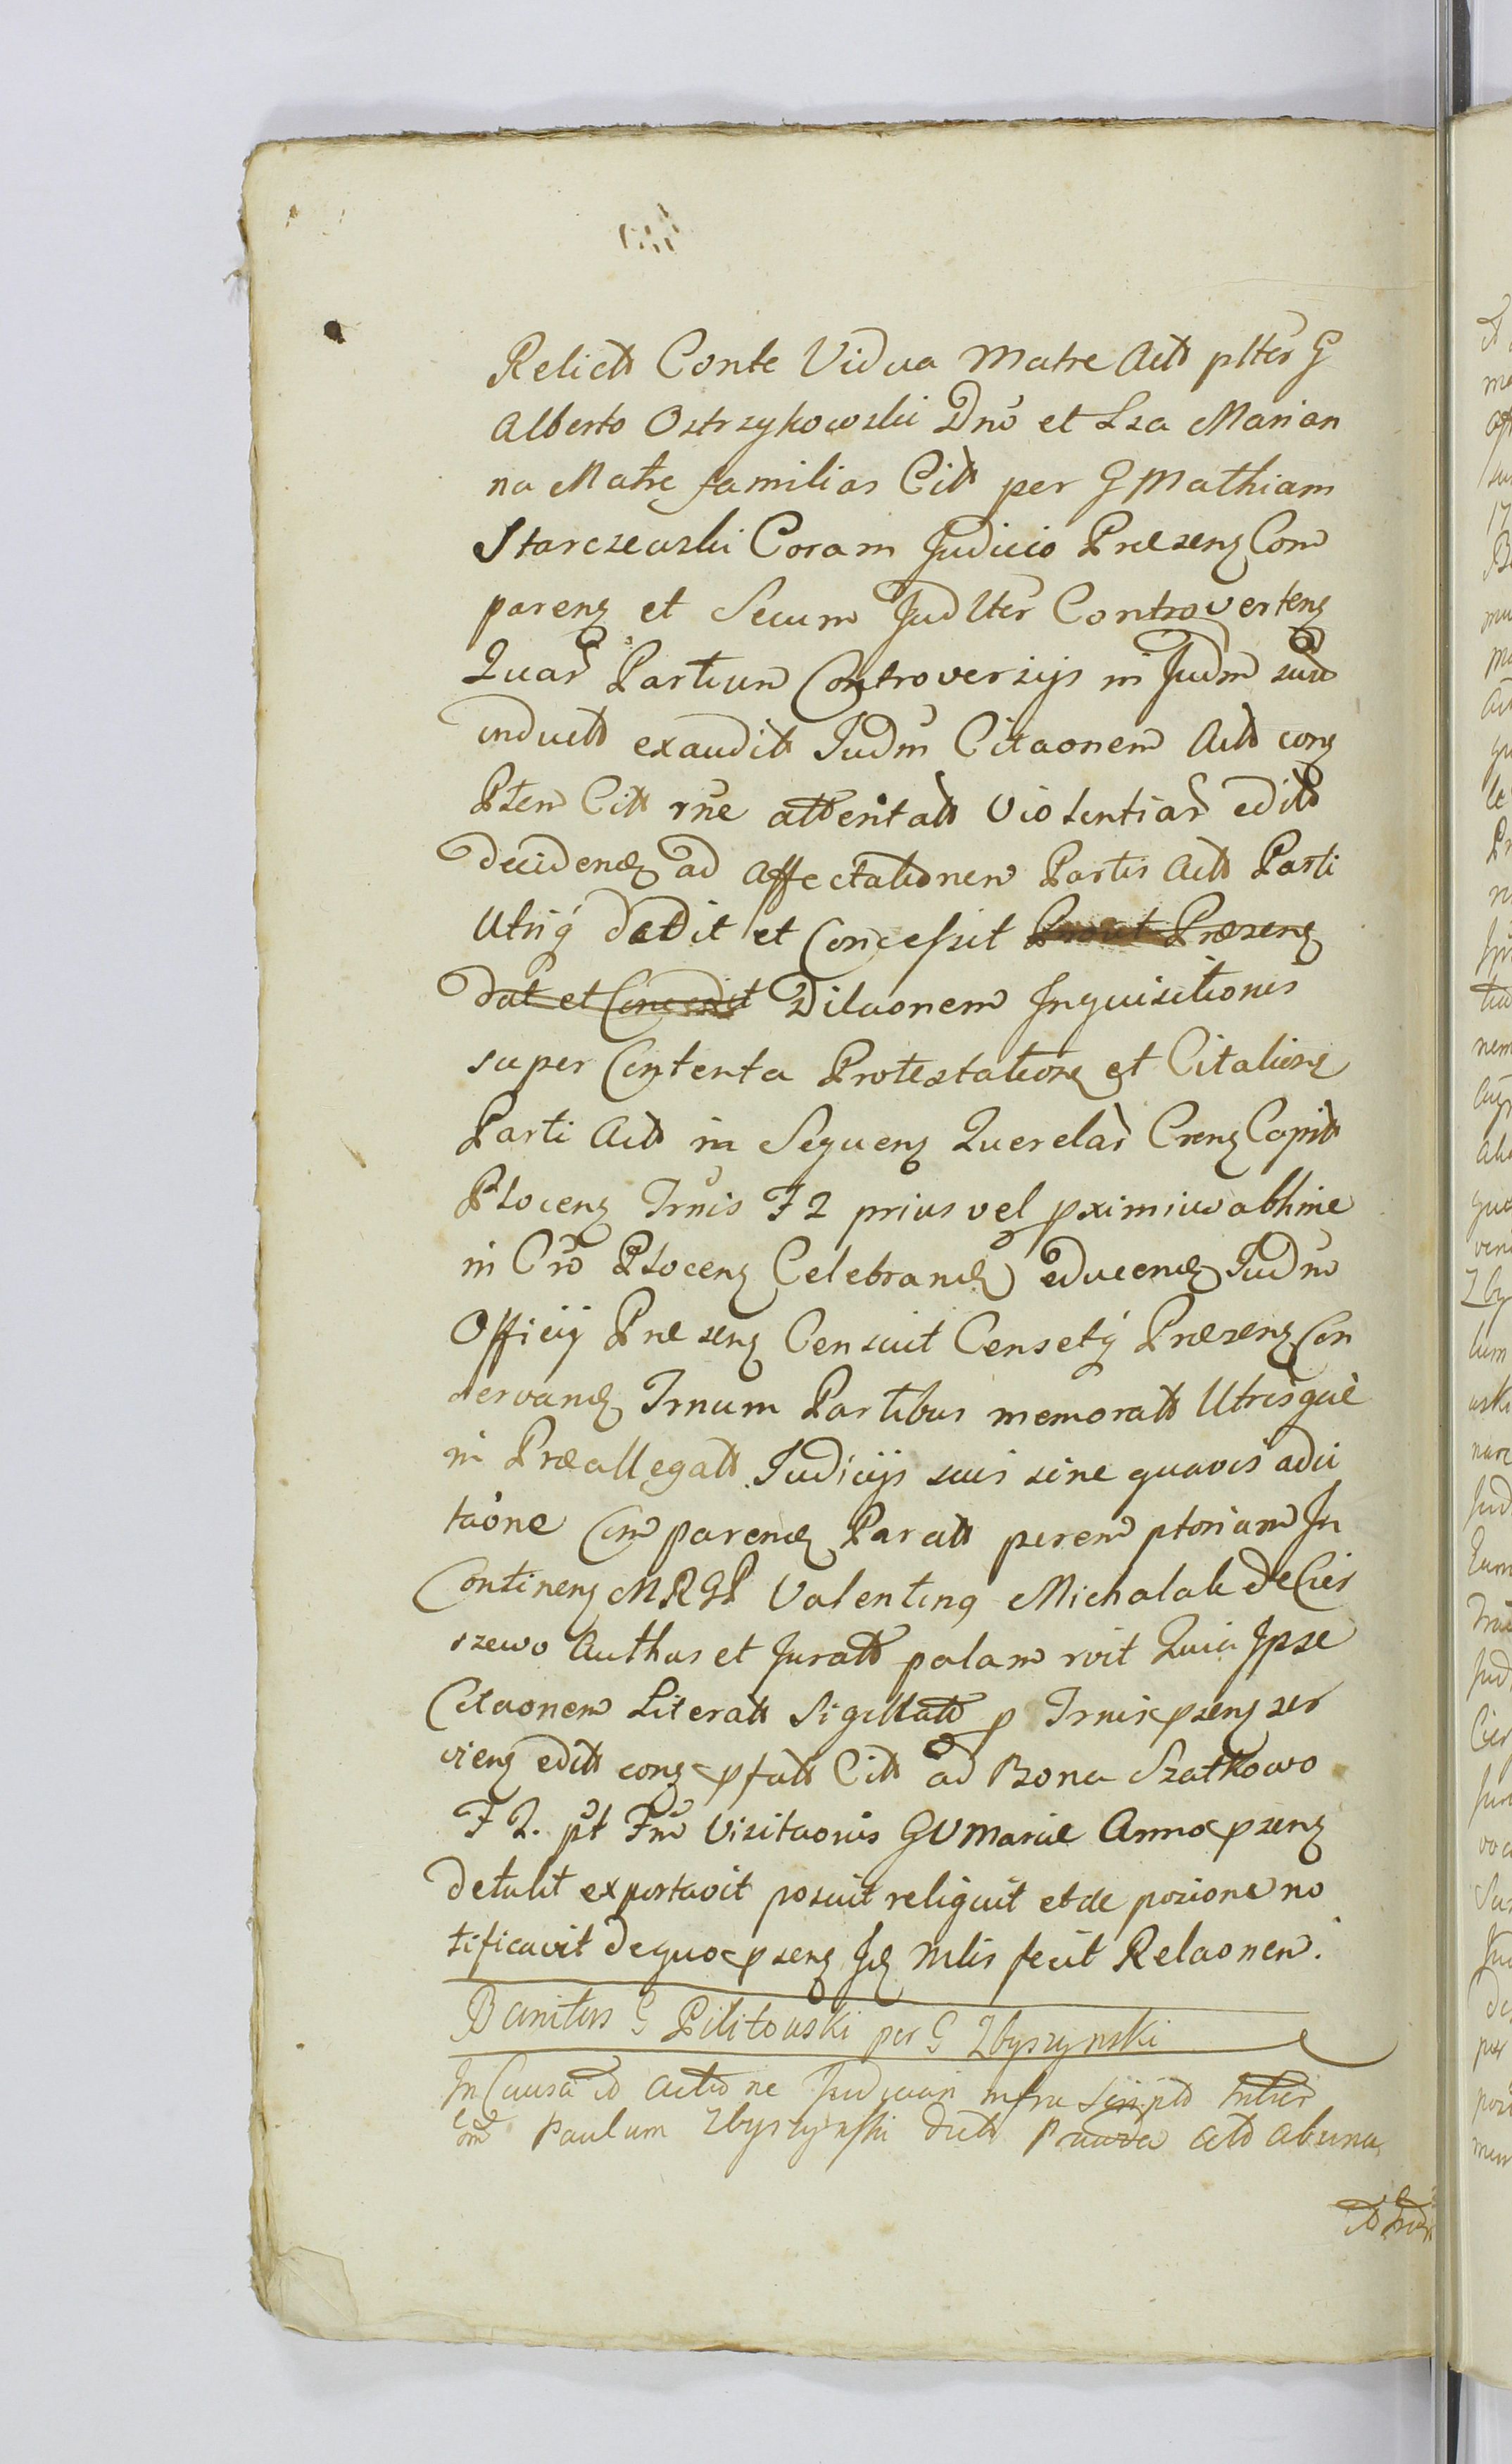 Relictt Conte Vidua Matre Actt plter G
Alberto Ostrzykowski Dno et Lza Marian
na Matre familias Citt per G Mathiam
Starczewski Coram Judicio Præsenz Com
parenz et Secum Judlter Controvertenz
Quar Partium Controversijs in Judm suu
inductt exauditt Judm Citaonem Actt conz
Ptem Citt rne attentatt Violentiar editt
decidendz ad Affectationem Partis Actt Parti
Utriq dedit et Concessit Prout Præsenz
dat et Concedit Dilaonem Inquisitionis
super Contenta Protestationz et Citationz
Parti Actt in Sequenz Querelar Crenz Capitt
Plocenz Trnis F 2 prius vel pximius abhinc
in Cro Plocenz Celebrandz educendz Judm
Officij Præsenz Censuit Censetq Præsenz Con
servandz Trnum Partibus memoratt Utrisque
in Præallegatt Judicijs suis sine quavis adci
taone Comparendz Paratt peremptoriam In
Continenz MRGP Valentinq Michalak de Cies
szewo Authus et Juratt palam rvit Quia Ipse
Citaonem Literatt Sigillatt p Trnis psenz ser
vienz editt conz pfatt Citt ad Bona Szatkowo
F 2. pt Fm Visitaonis GVMariæ Anno psenz
detulit exportavit posuit reliquit et de pozione no
tificavit de quo psenz Jdz Mlis fecit Relaonem.
Banitus G Pilitowski per G Zbyszynski
In Causa et Actione Judm infra Scripto Inter
Paulum Zbyszynski Actt ab una